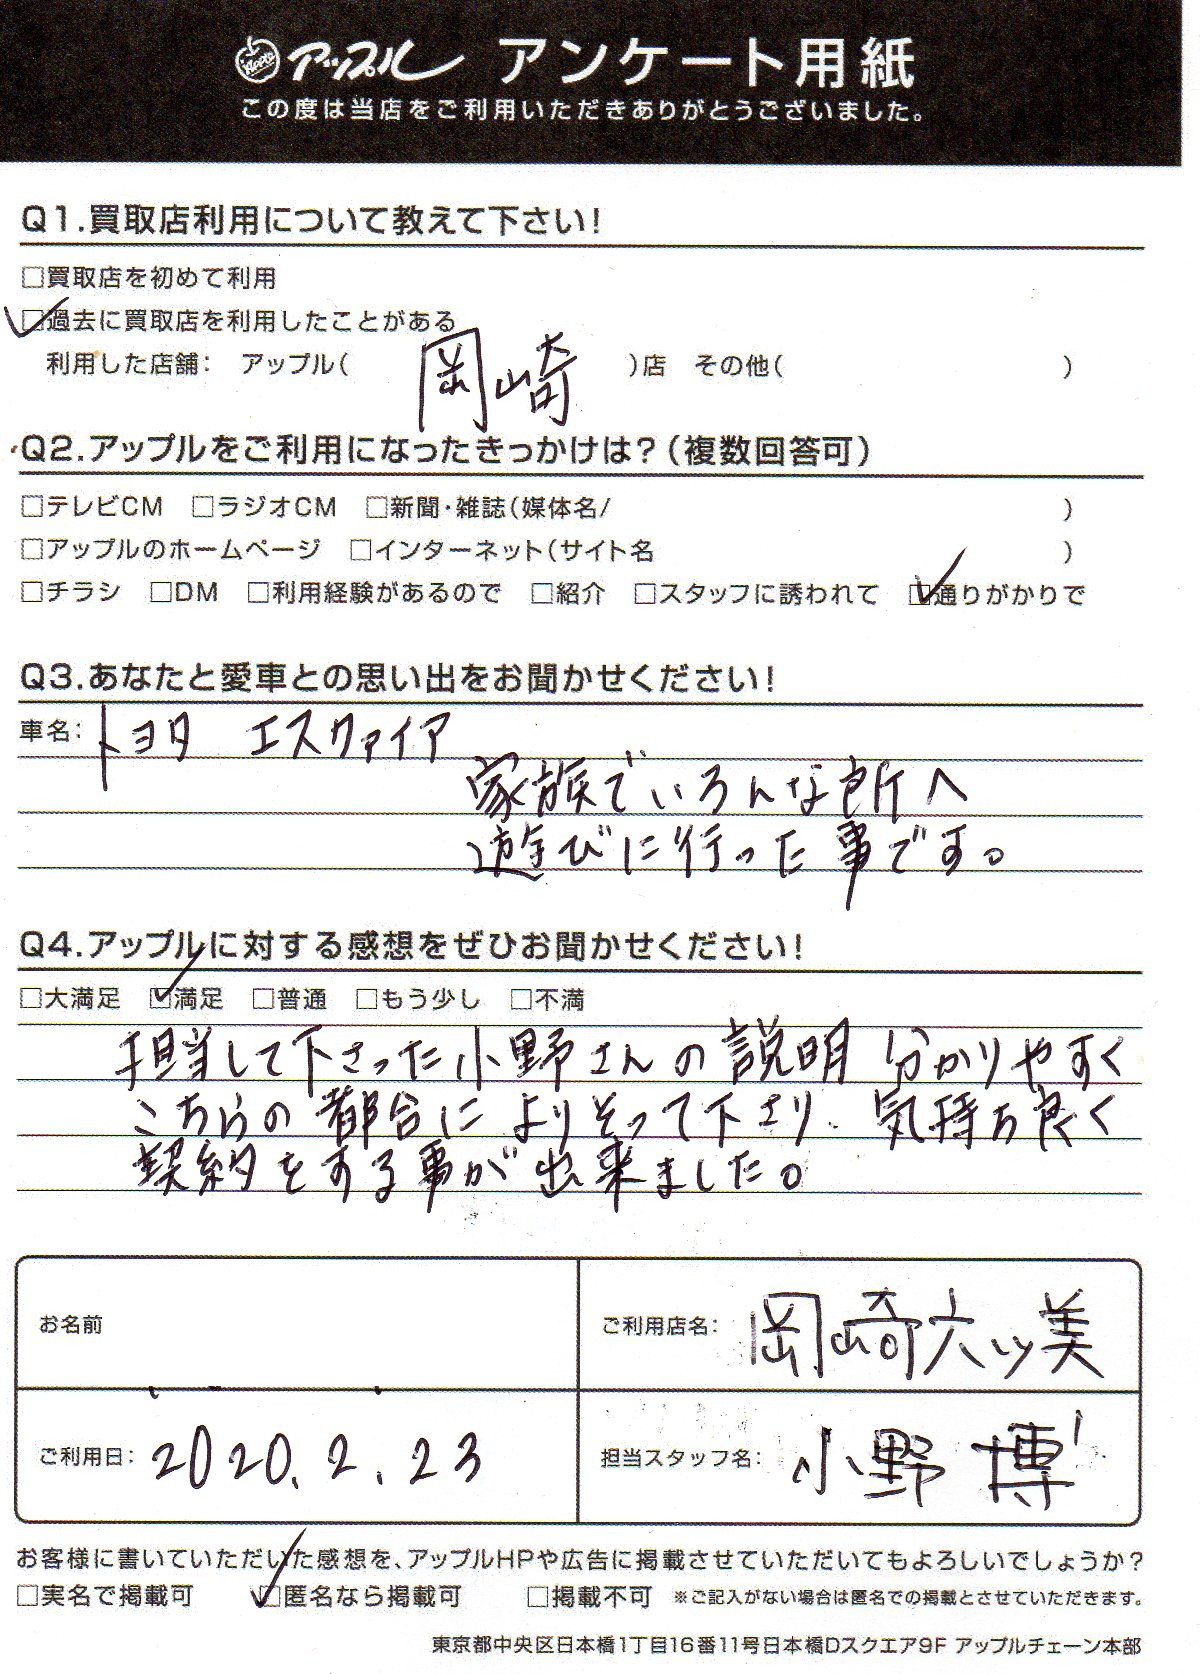 Apple アップル アンケート用紙
この度は当店をご利用いただきありがとうございました。
Q1.買取店利用について教えて下さい!
□買取店を初めて利用
☑過去に買取店を利用したことがある
利用した店舗: アップル( 岡崎 )店 その他( )
Q2.アップルをご利用になったきっかけは?(複数回答可)
□テレビCM □ラジオCM □新聞・雑誌(媒体名/ )
□アップルのホームページ □インターネット(サイト名 )
□チラシ □DM □利用経験があるので □紹介 □スタッフに誘われて ☑通りがかりで
Q3.あなたと愛車との思い出をお聞かせください!
車名: トヨタ エスクァイア
家族でいろんな所へ
遊びに行った事です。
Q4.アップルに対する感想をぜひお聞かせください!
□大満足 ☑満足 □普通 □もう少し □不満
担当して下さった小野さんの説明 分かりやすく
こちらの都合によりそって下さり、気持ち良く
契約をする事が出来ました。
お名前
ご利用店名: 岡崎六ッ美
ご利用日: 2020.2.23
担当スタッフ名: 小野 博
お客様に書いていただいた感想を、アップルHPや広告に掲載させていただいてもよろしいでしょうか?
□実名で掲載可 ☑匿名なら掲載可 □掲載不可 ※ご記入がない場合は匿名での掲載とさせていただきます。
東京都中央区日本橋1丁目16番11号日本橋Dスクエア9F アップルチェーン本部